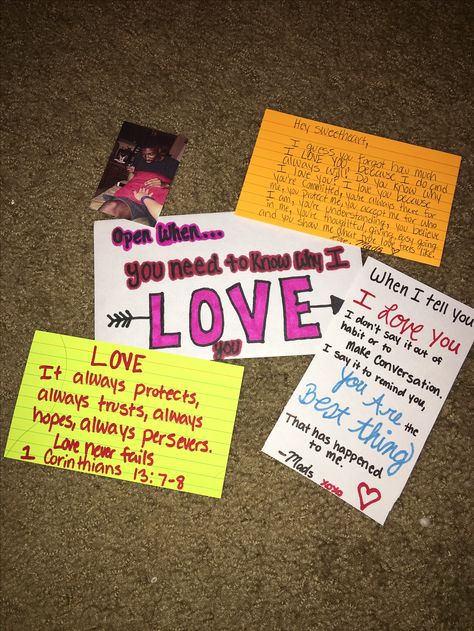 Hey sweetheart,
I guess you forgot how much
I LOVE YOU because I do and
always will! Do you know why
I love you? I love you because
you're committed, you're always there for
me, you protect me, you accept me for who
I am, you're understanding, you believe
in me, you're thoughtful, giving, easy going
and you show me what true love feels like!
Open When...
you need to know why I
LOVE
you
When I tell you
I Love you
I don't say it out of
habit or to
Make Conversation.
I say it to remind you,
You Are the
Best thing
That has happened
to me.
-Mads
xoxo
LOVE
It always protects,
always trusts, always
hopes, always persevers.
Love never fails
1 Corinthians 13:7-8